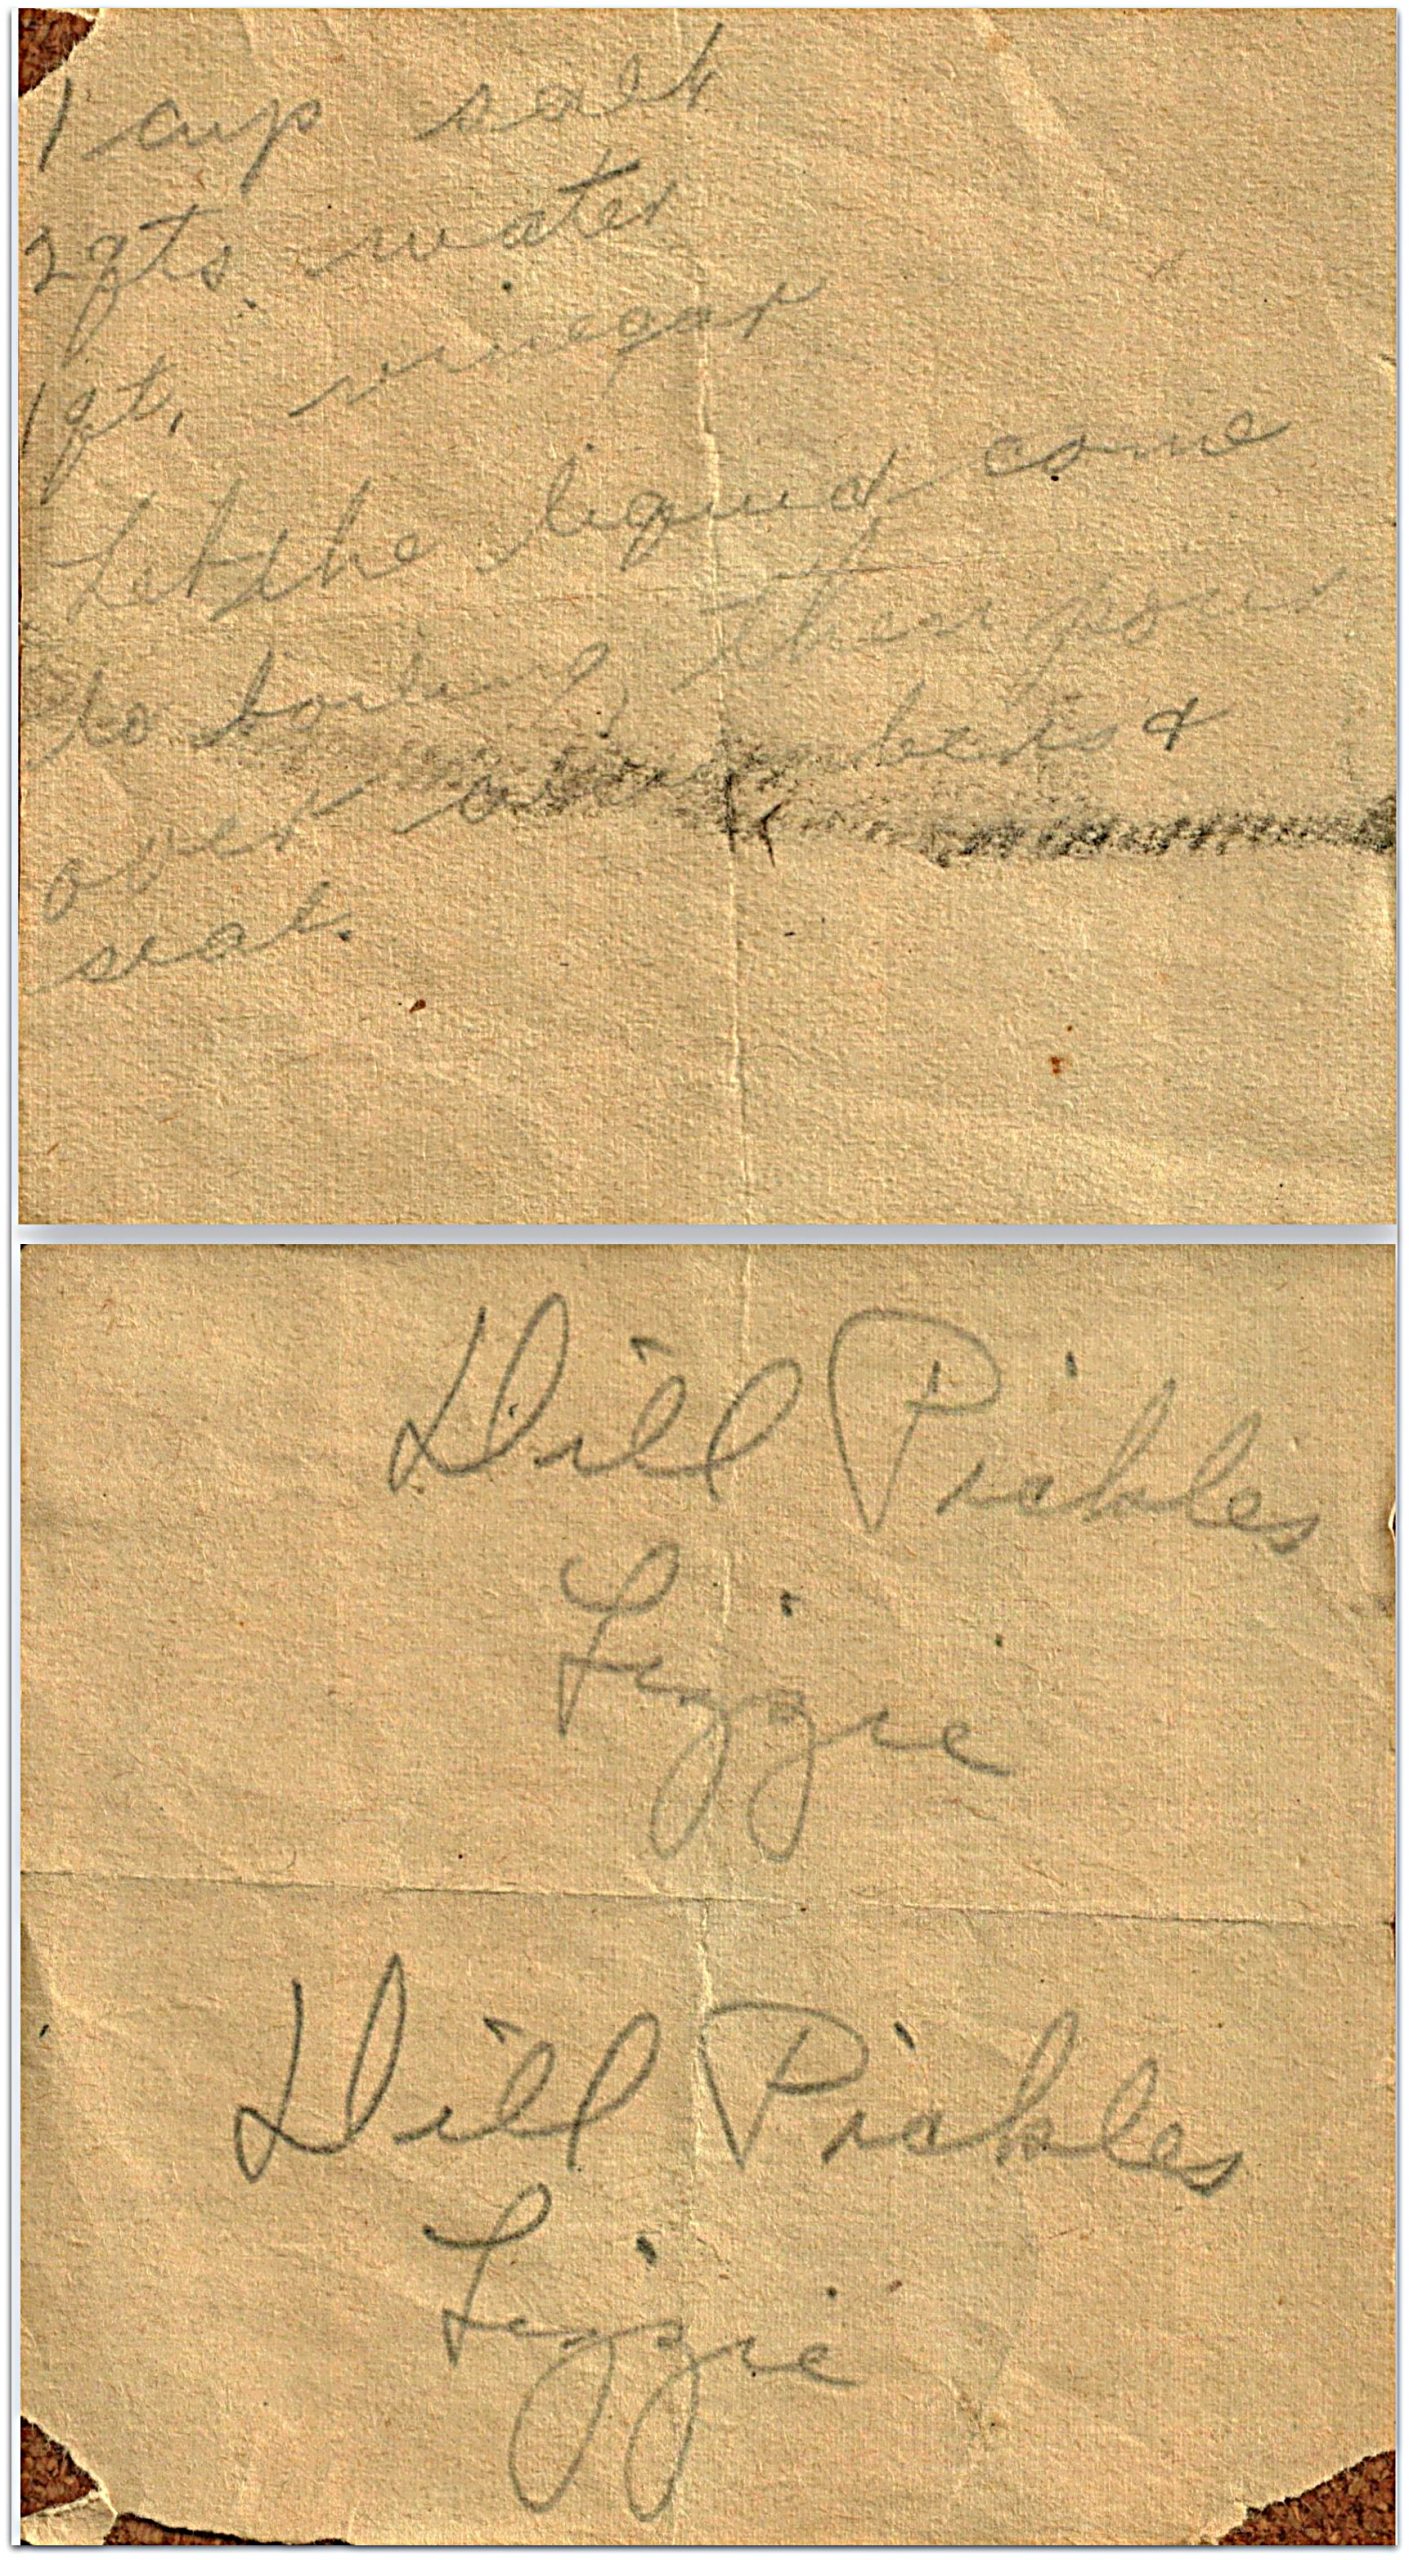 1 cup salt
2 qts. water
1 qt. vinegar
Let the liquid come
to boiling, then pour
over cucumbers &
seal.
Dill Pickles
Lizzie
Dill Pickles
Lizzie